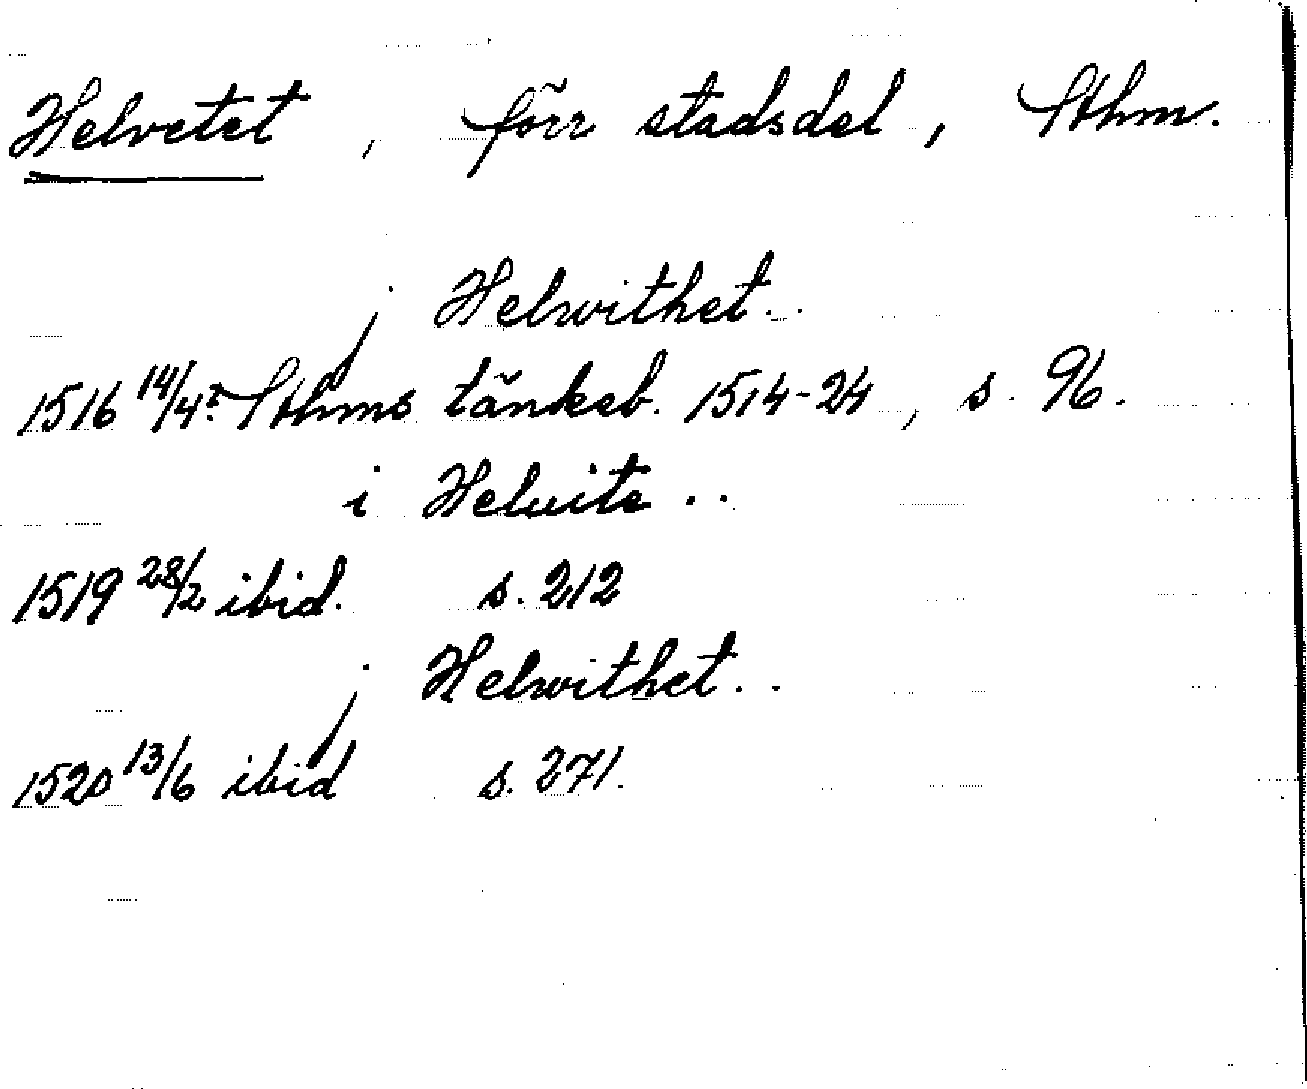 Helvetet, förr stadsdel, Sthm.
j Helwithet..
1516 14/4? Sthms tänkeb. 1514-24, s. 96.
i Heluite ..
1519 28/2 ibid. s. 212
j Helwithet..
1520 13/6 ibid s. 271.